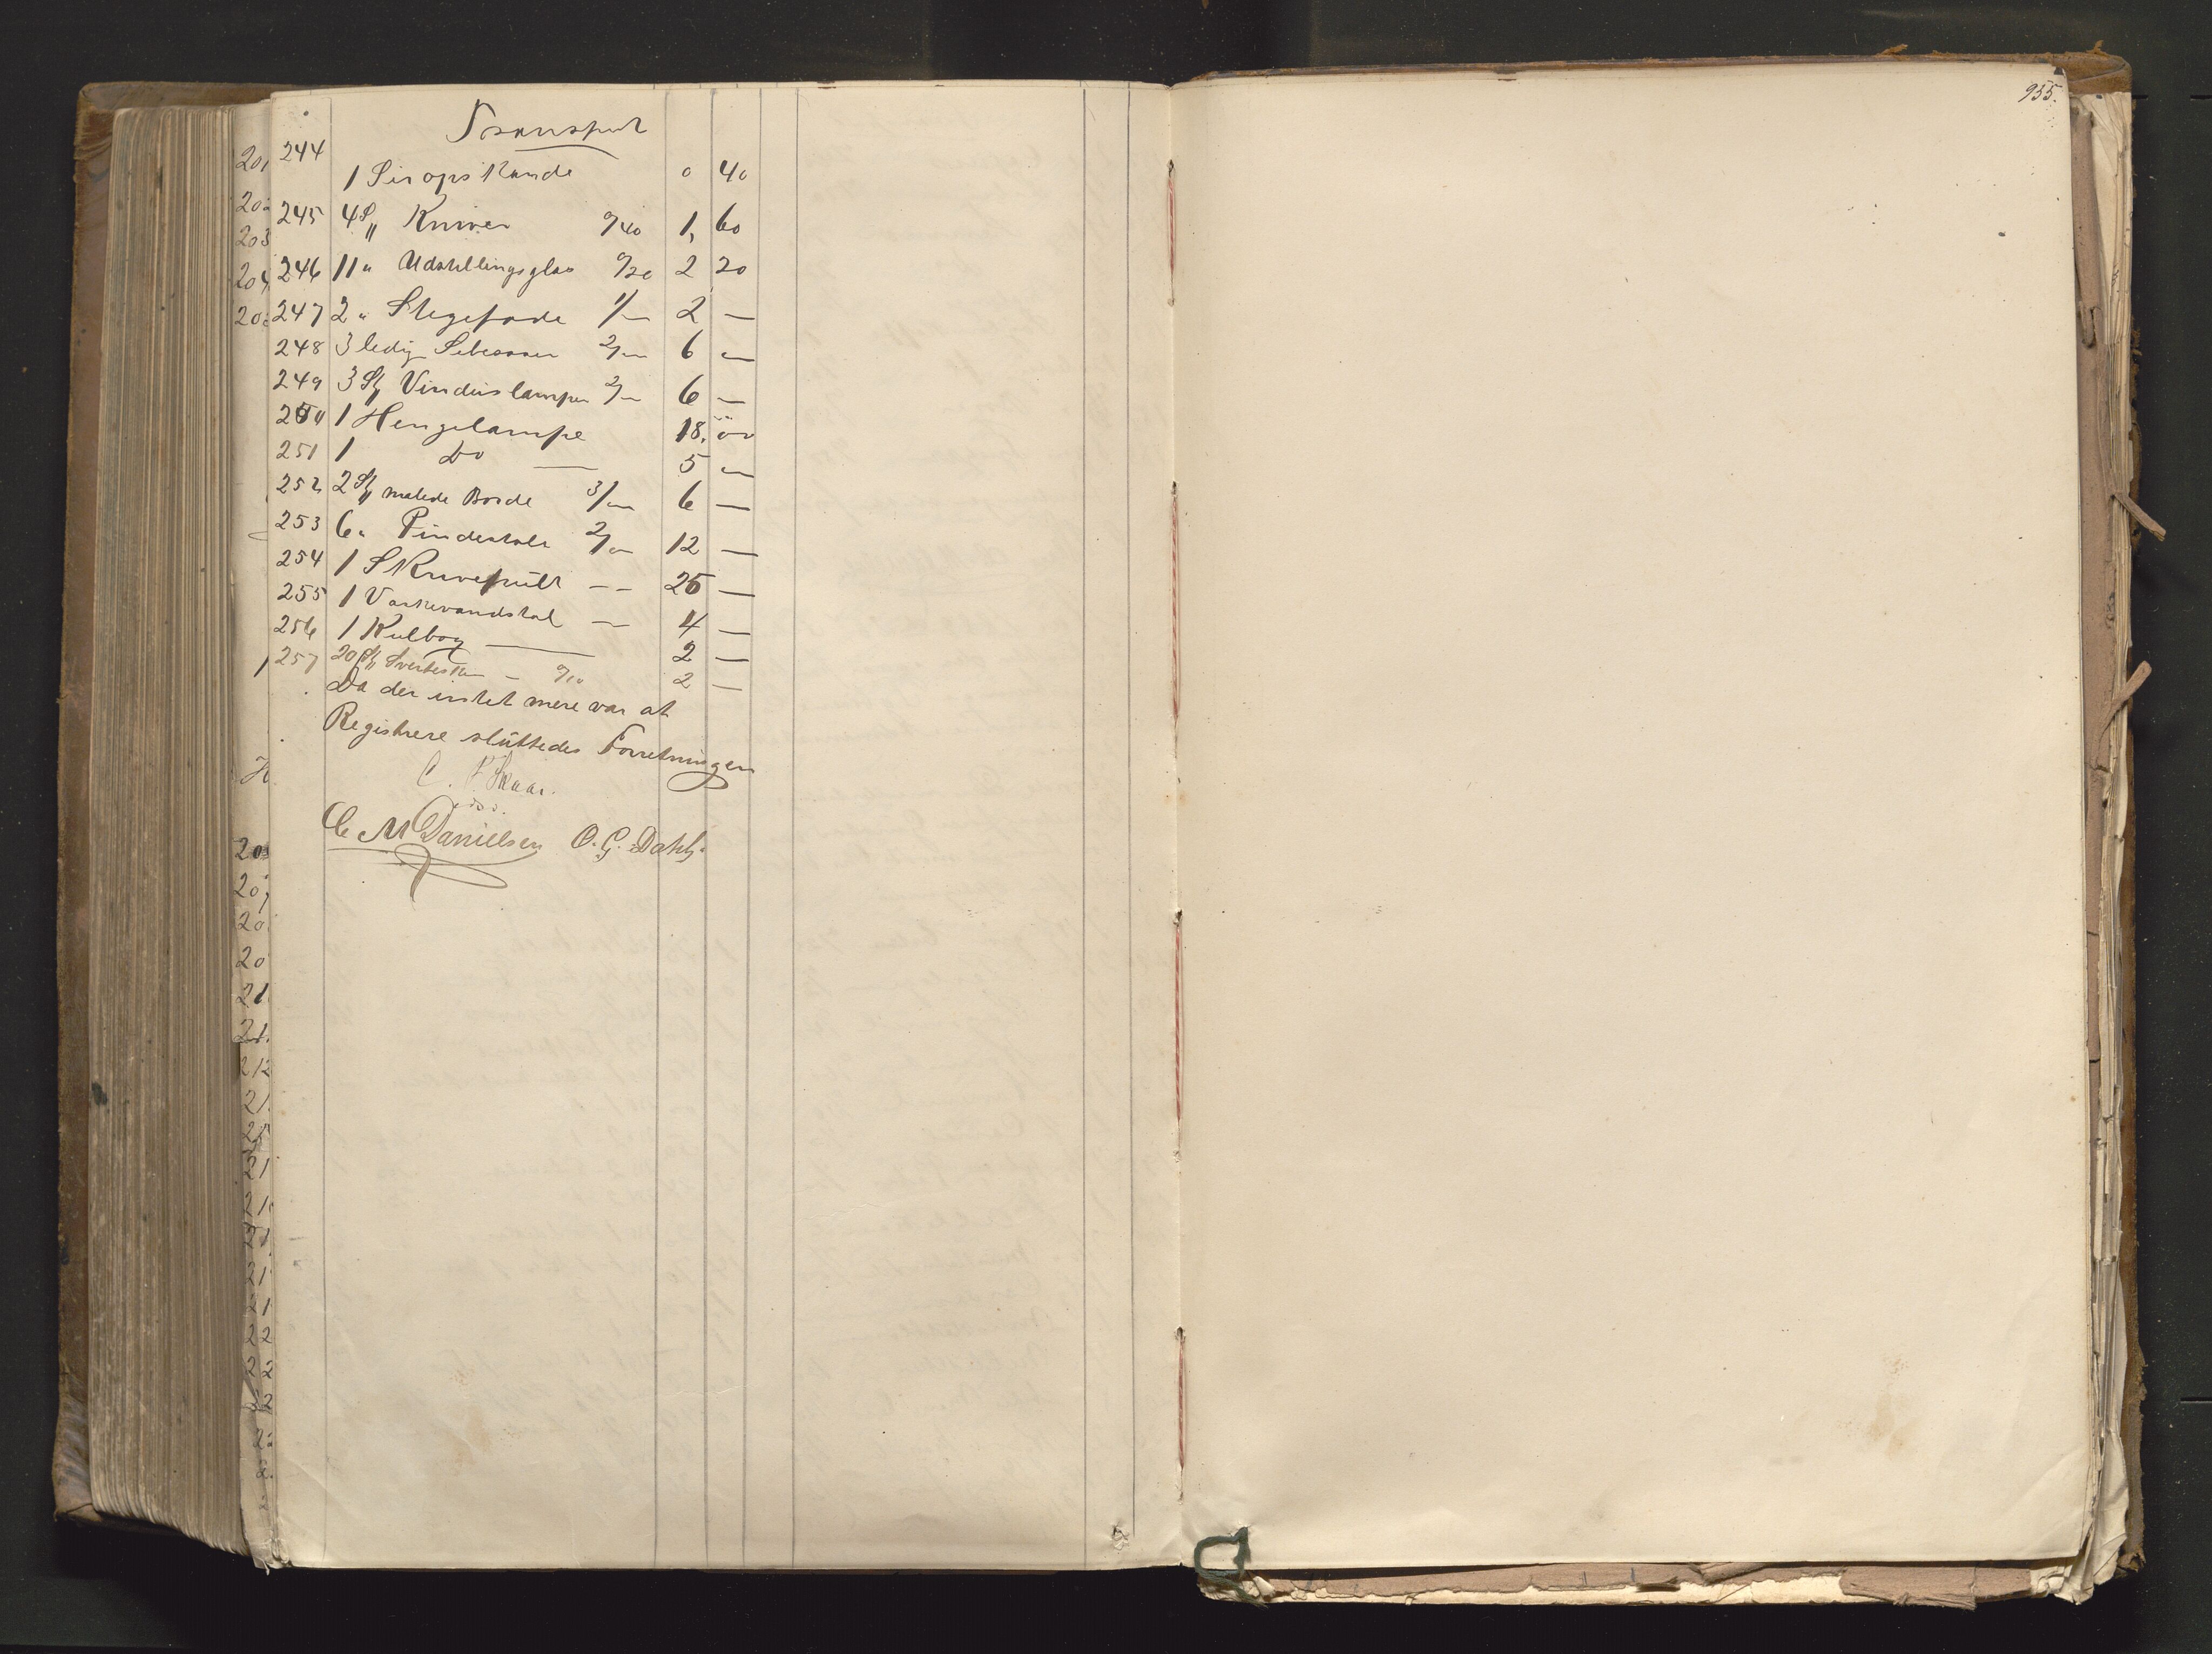 955.
Transport
244 1 Sirops Kande 0 40
245 4 St Kniver 0/40 1, 60
246 11 " Udstillingsglas 0/20 2 20
247 2 " Stegefade 1/— 2 —
248 3 ledig 2/— 6 —
249 3 St Vinduslamper 2/— 6 —
250 1 Hengelampe 18. 00
251 1 Do — 5 —
252 2 St malede Borde 3/— 6 —
253 6 " Pindestole 2/— 12 —
254 1 Skrivepult — — 25 —
255 1 Vaskevandstol — 4 —
256 1 Kulbox — 2 —
257 20 St — 0/10 2 —
Da der intet mere var at
Registrere sluttedes Forretningen
C. Skaar.
C M Danielsen O. G. Dahl.